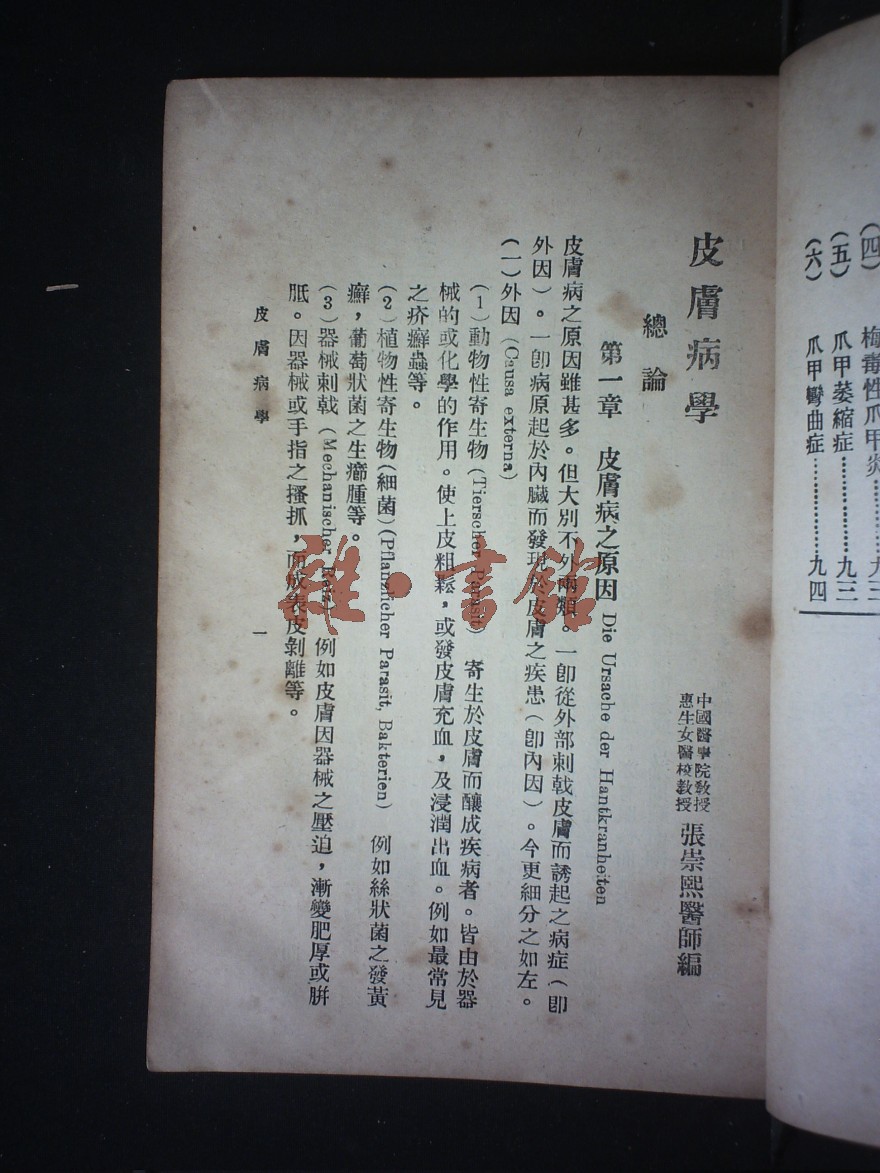 (四)　梅毒性爪甲炎…………九三
(五)　爪甲萎縮症…………九三
(六)　爪甲彎曲症…………九四
皮膚病學
中國醫學院教授
惠生女醫校教授
張崇熙醫師編
總論
第一章　皮膚病之原因 Die Ursache der Hantkranheiten
皮膚病之原因雖甚多。但大別不外兩類。一卽從外部刺戟皮膚而誘起之病症（卽
外因）。一卽病原起於內臟而發現於皮膚之疾患（卽內因）。今更細分之如左。
(一)外因（Causa externa）
(1)動物性寄生物(Tierscher Parasit)　寄生於皮膚而釀成疾病者。皆由於器
械的或化學的作用。使上皮粗鬆，或發皮膚充血，及浸潤出血。例如最常見
之疥癬蟲等。
(2)植物性寄生物(細菌)(Pflanslicher Parasit, Bakterien)　例如絲狀菌之發黃
癬，葡萄狀菌之生癤腫等。
(3)器械刺戟（Mechanischer Reiz)　例如皮膚因器械之壓迫，漸變肥厚或胼
胝。因器械或手指之搔抓，而成表皮剝離等。
皮膚病學
一
雜·書館